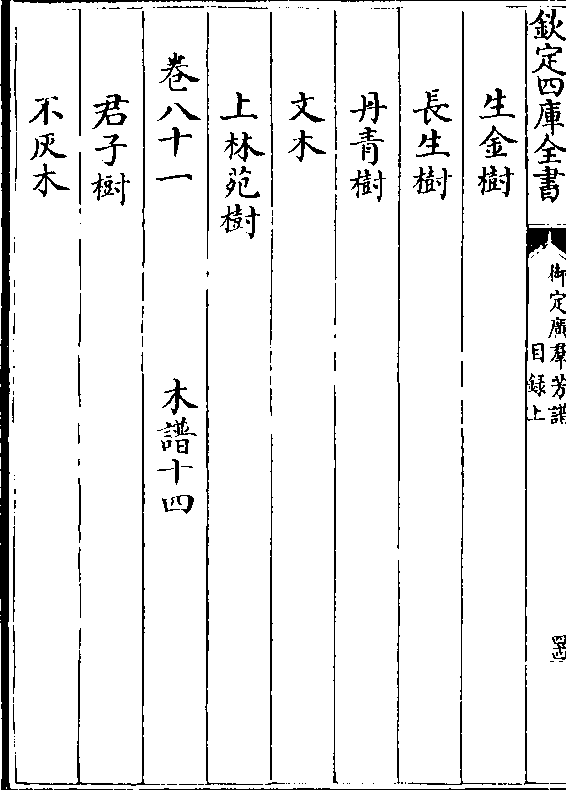 欽定四庫全書
御定廣羣芳譜
目錄上
生金樹
長生樹
丹青樹
文木
上林苑樹
卷八十一 木譜十四
君子樹
不灰木